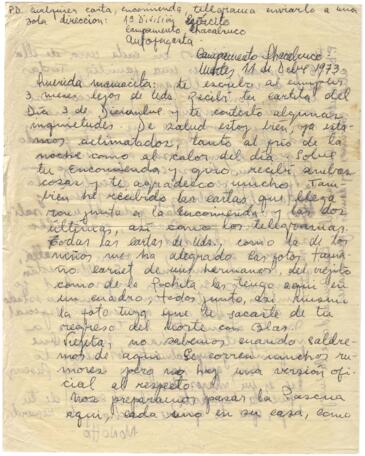 P.D. cualquier carta, encomienda, telegrama enviarlo a una
sola dirección: 1a División Ejército
Campamento Chacabuco
Antofagasta.
Campamento Chacabuco
Martes 11 de Dcbre 1973
Querida mamacita: te escribo al cumplir
mes lejos de Uds. Recibí tu cartita del
Día 3 de Diciembre y te contesto algunas
inquietudes. De salud estoy bien, ya esta-
mos aclimatados, tanto al frío de la
noche como al calor del día. Sobre
tu Encomienda y giro, recibí ambas
cosas y te agradezco mucho. Tam
bien he recibido las cartas que llega
ron junto a la Encomienda y las dos
últimas, así como los telegramas.
Todas las cartas de Uds., como la de los
niños me ha alegrado las fotos tama
ño carnet de mis hermanos, del viejito
como de la Pochita las tengo aquí en
un cuadro, todos junto, así mismo
la foto tuya que te sacaste de tu
regreso del Norte con Blas.
Viejita, no sabemos cuando saldre-
mos de aquí. Se corren muchos ru-
mores pero no hay una versión ofi-
cial al respecto.
Nos preparamos pasar la Pascua
aquí, cada uno en su casa, como